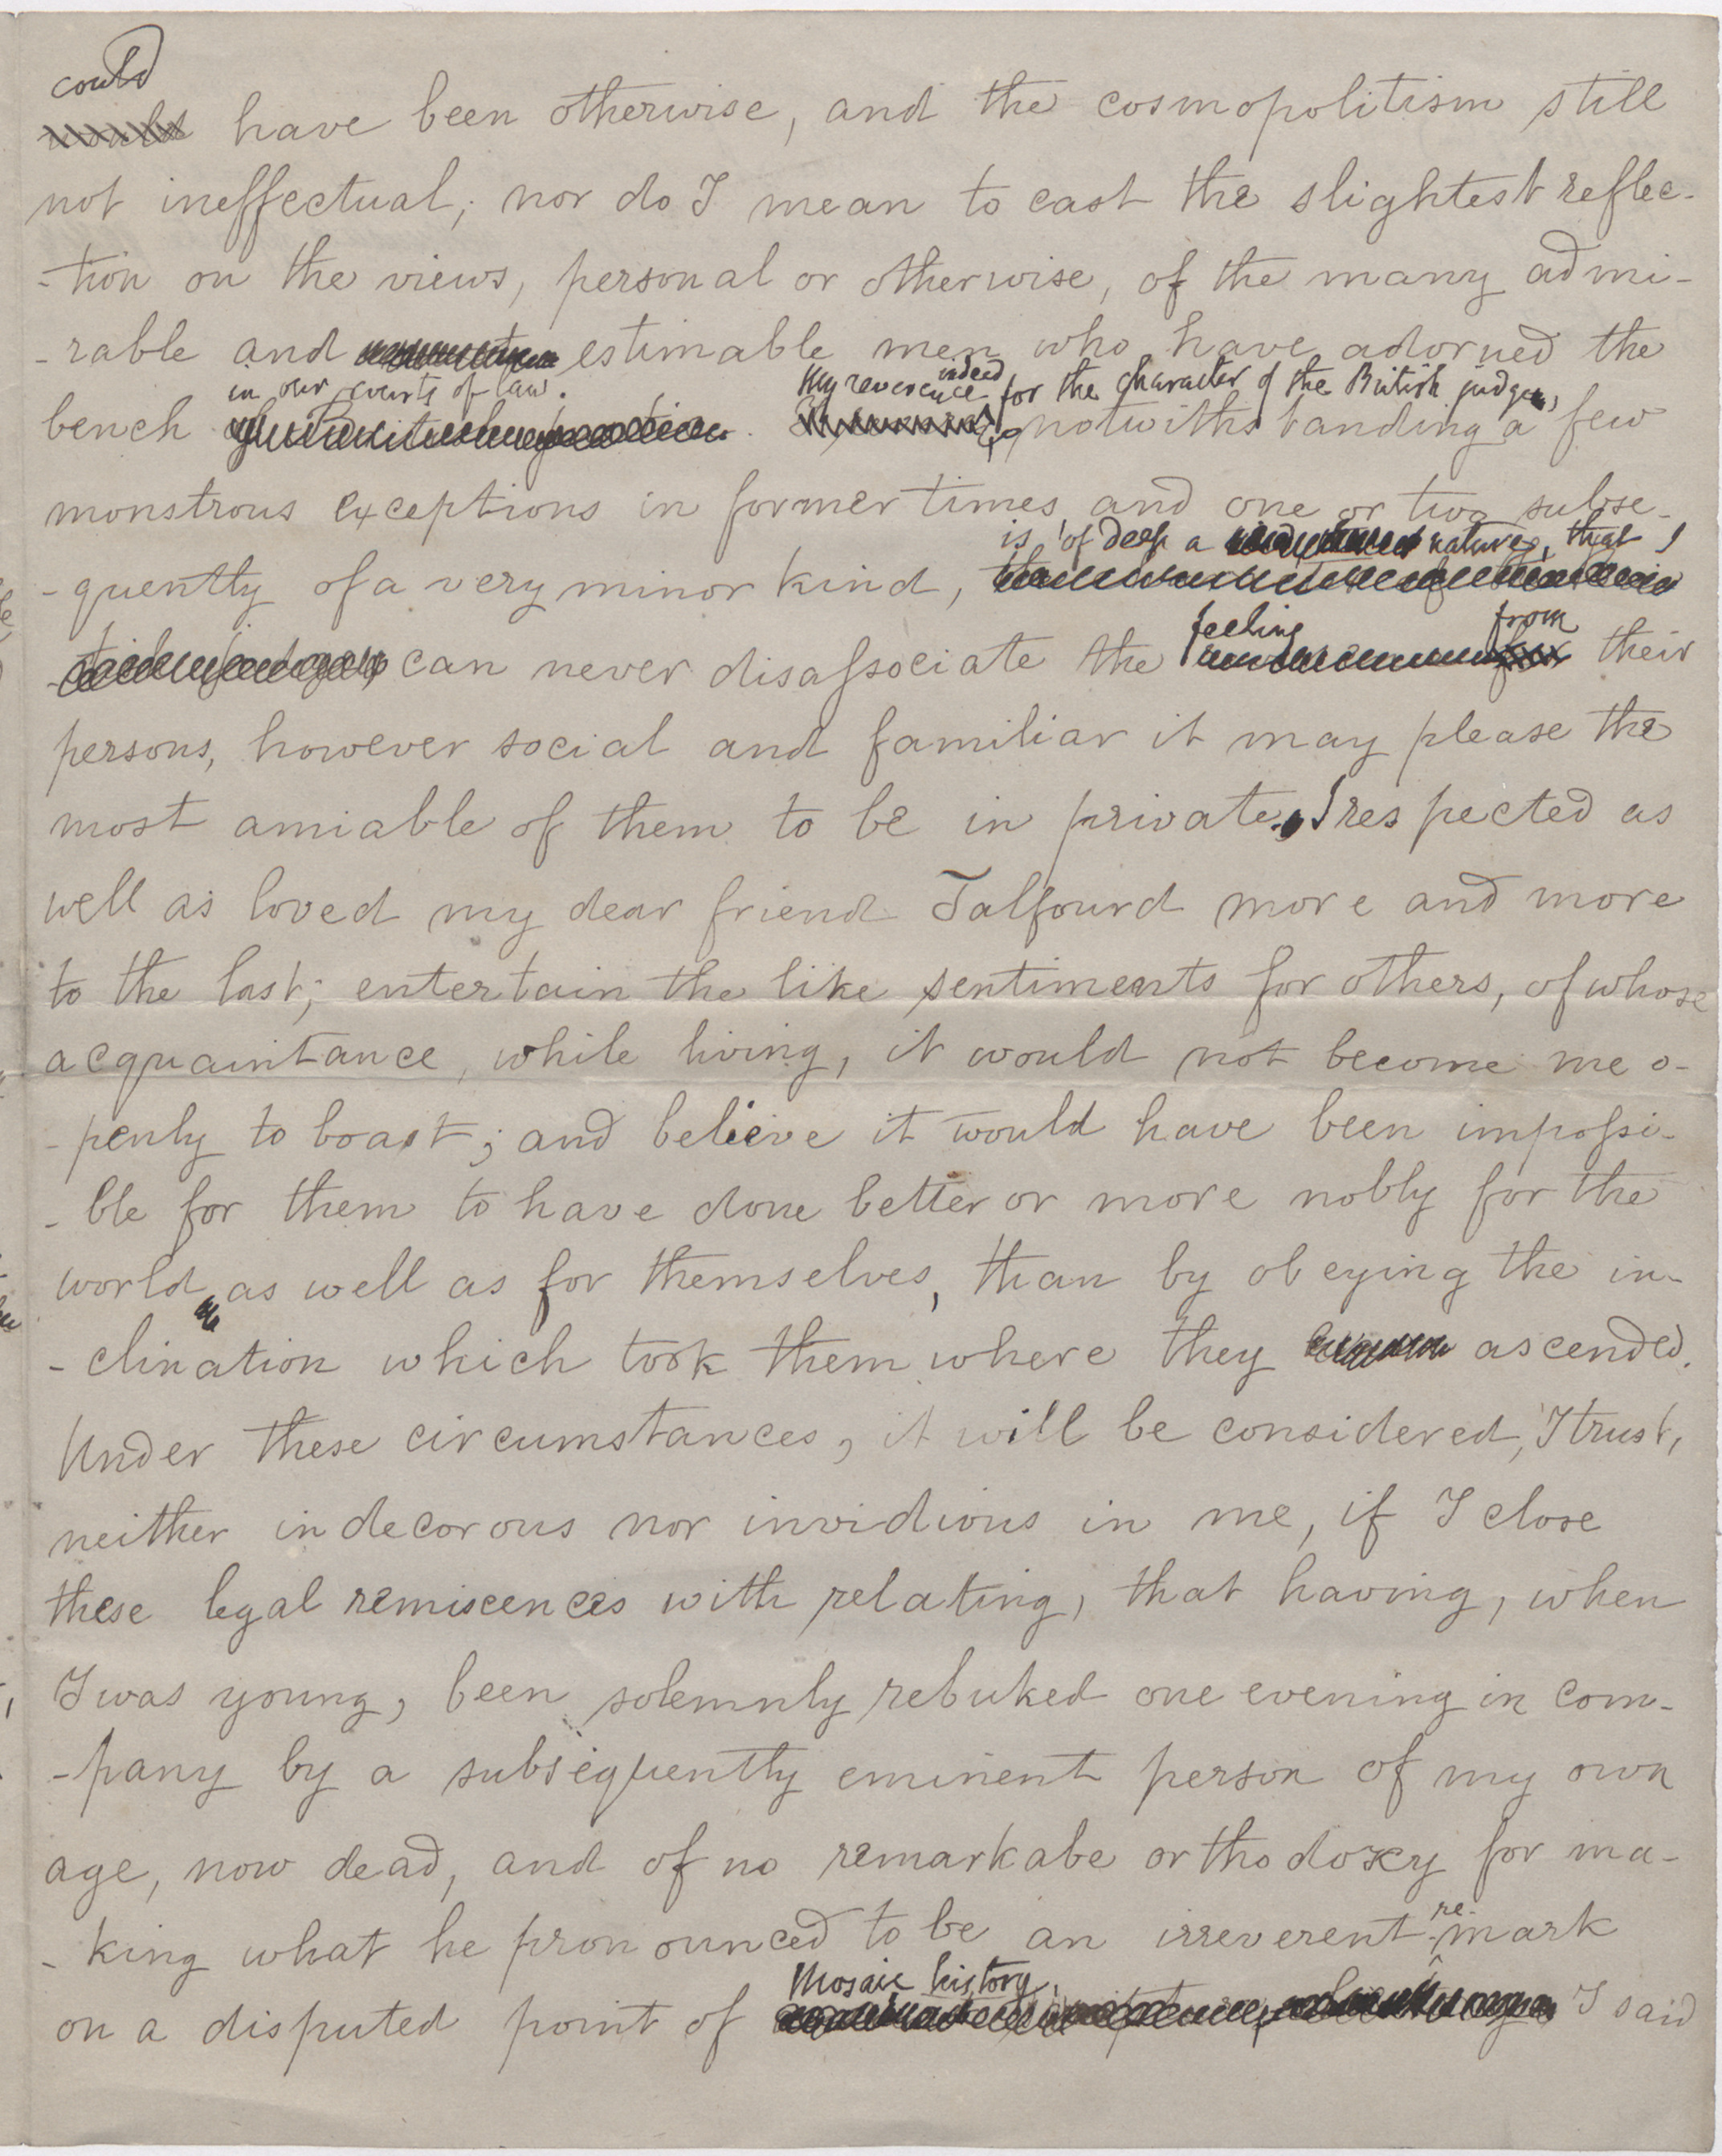 could
have been otherwise, and the cosmopolitism still
not ineffectual; nor do I mean to cast the slightest reflec-
-tion on the views, personal or otherwise, of the many admi-
-rable and estimable men who have adorned the
in our courts of law. My reverence indeed for the character of the British judges,
bench notwithstanding a few
monstrous exceptions in former times and one or two subse-
is of deep a nature, that I
-quently of a very minor kind,
feeling from
can never disassociate the their
persons, however social and familiar it may please the
most amiable of them to be in private. I respected as
well as loved my dear friend Talfourd more and more
to the last; entertain the like sentiments for others, of whose
acquaintance, while living, it would not become me o-
-penly to boast; and believe it would have been impossi-
-ble for them to have done better or more nobly for the
world as well as for themselves, than by obeying the in-
-clination which took them where they ascended.
Under these circumstances, it will be considered, I trust,
neither indecorous nor invidious in me, if I close
these legal remiscences with relating, that having, when
I was young, been solemnly rebuked one evening in com-
-pany by a subsequently eminent person of my own
age, now dead, and of no remarkabe orthodoxy for ma-
-king what he pronounced to be an irreverent re-mark
Mosaic history,
on a disputed point of I said